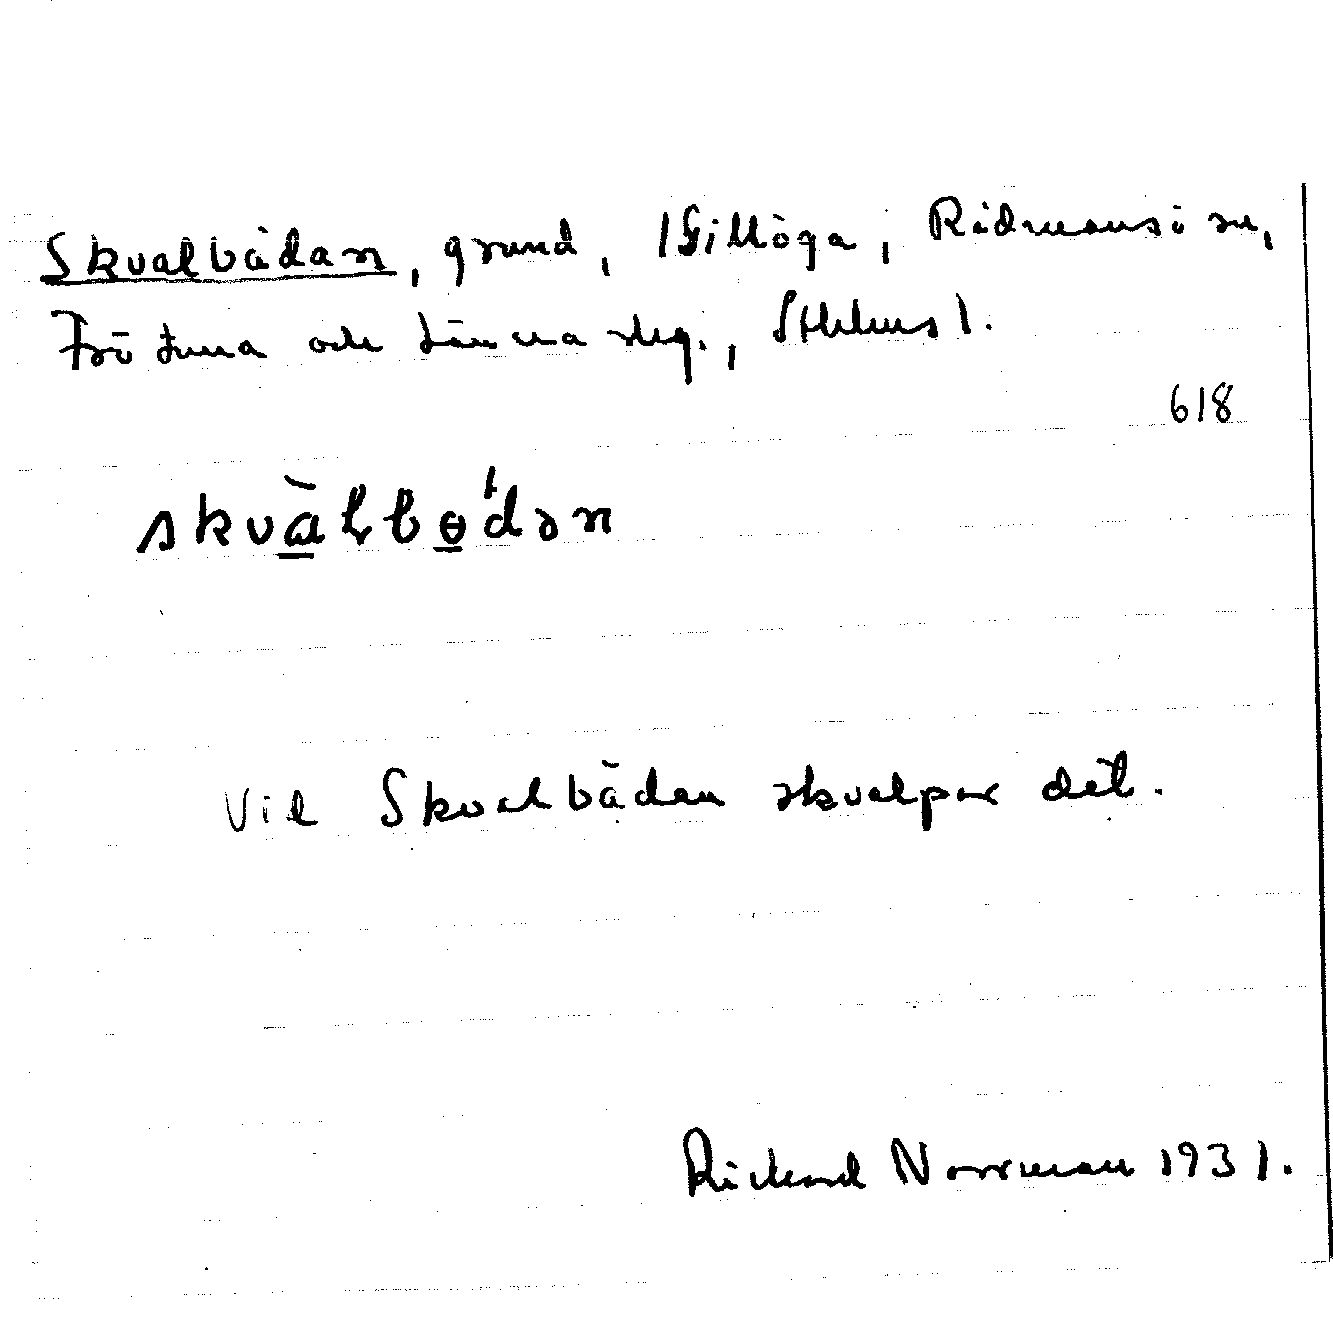 Skvalbådan, grund, Gillöga, Rådmansö sn,
Frötuna och Länna skg., Sthlms l.
618
skvàlbɵ́dən
Vid Skvalbådan skvalpar dét.
Rickard Norrman 1931.